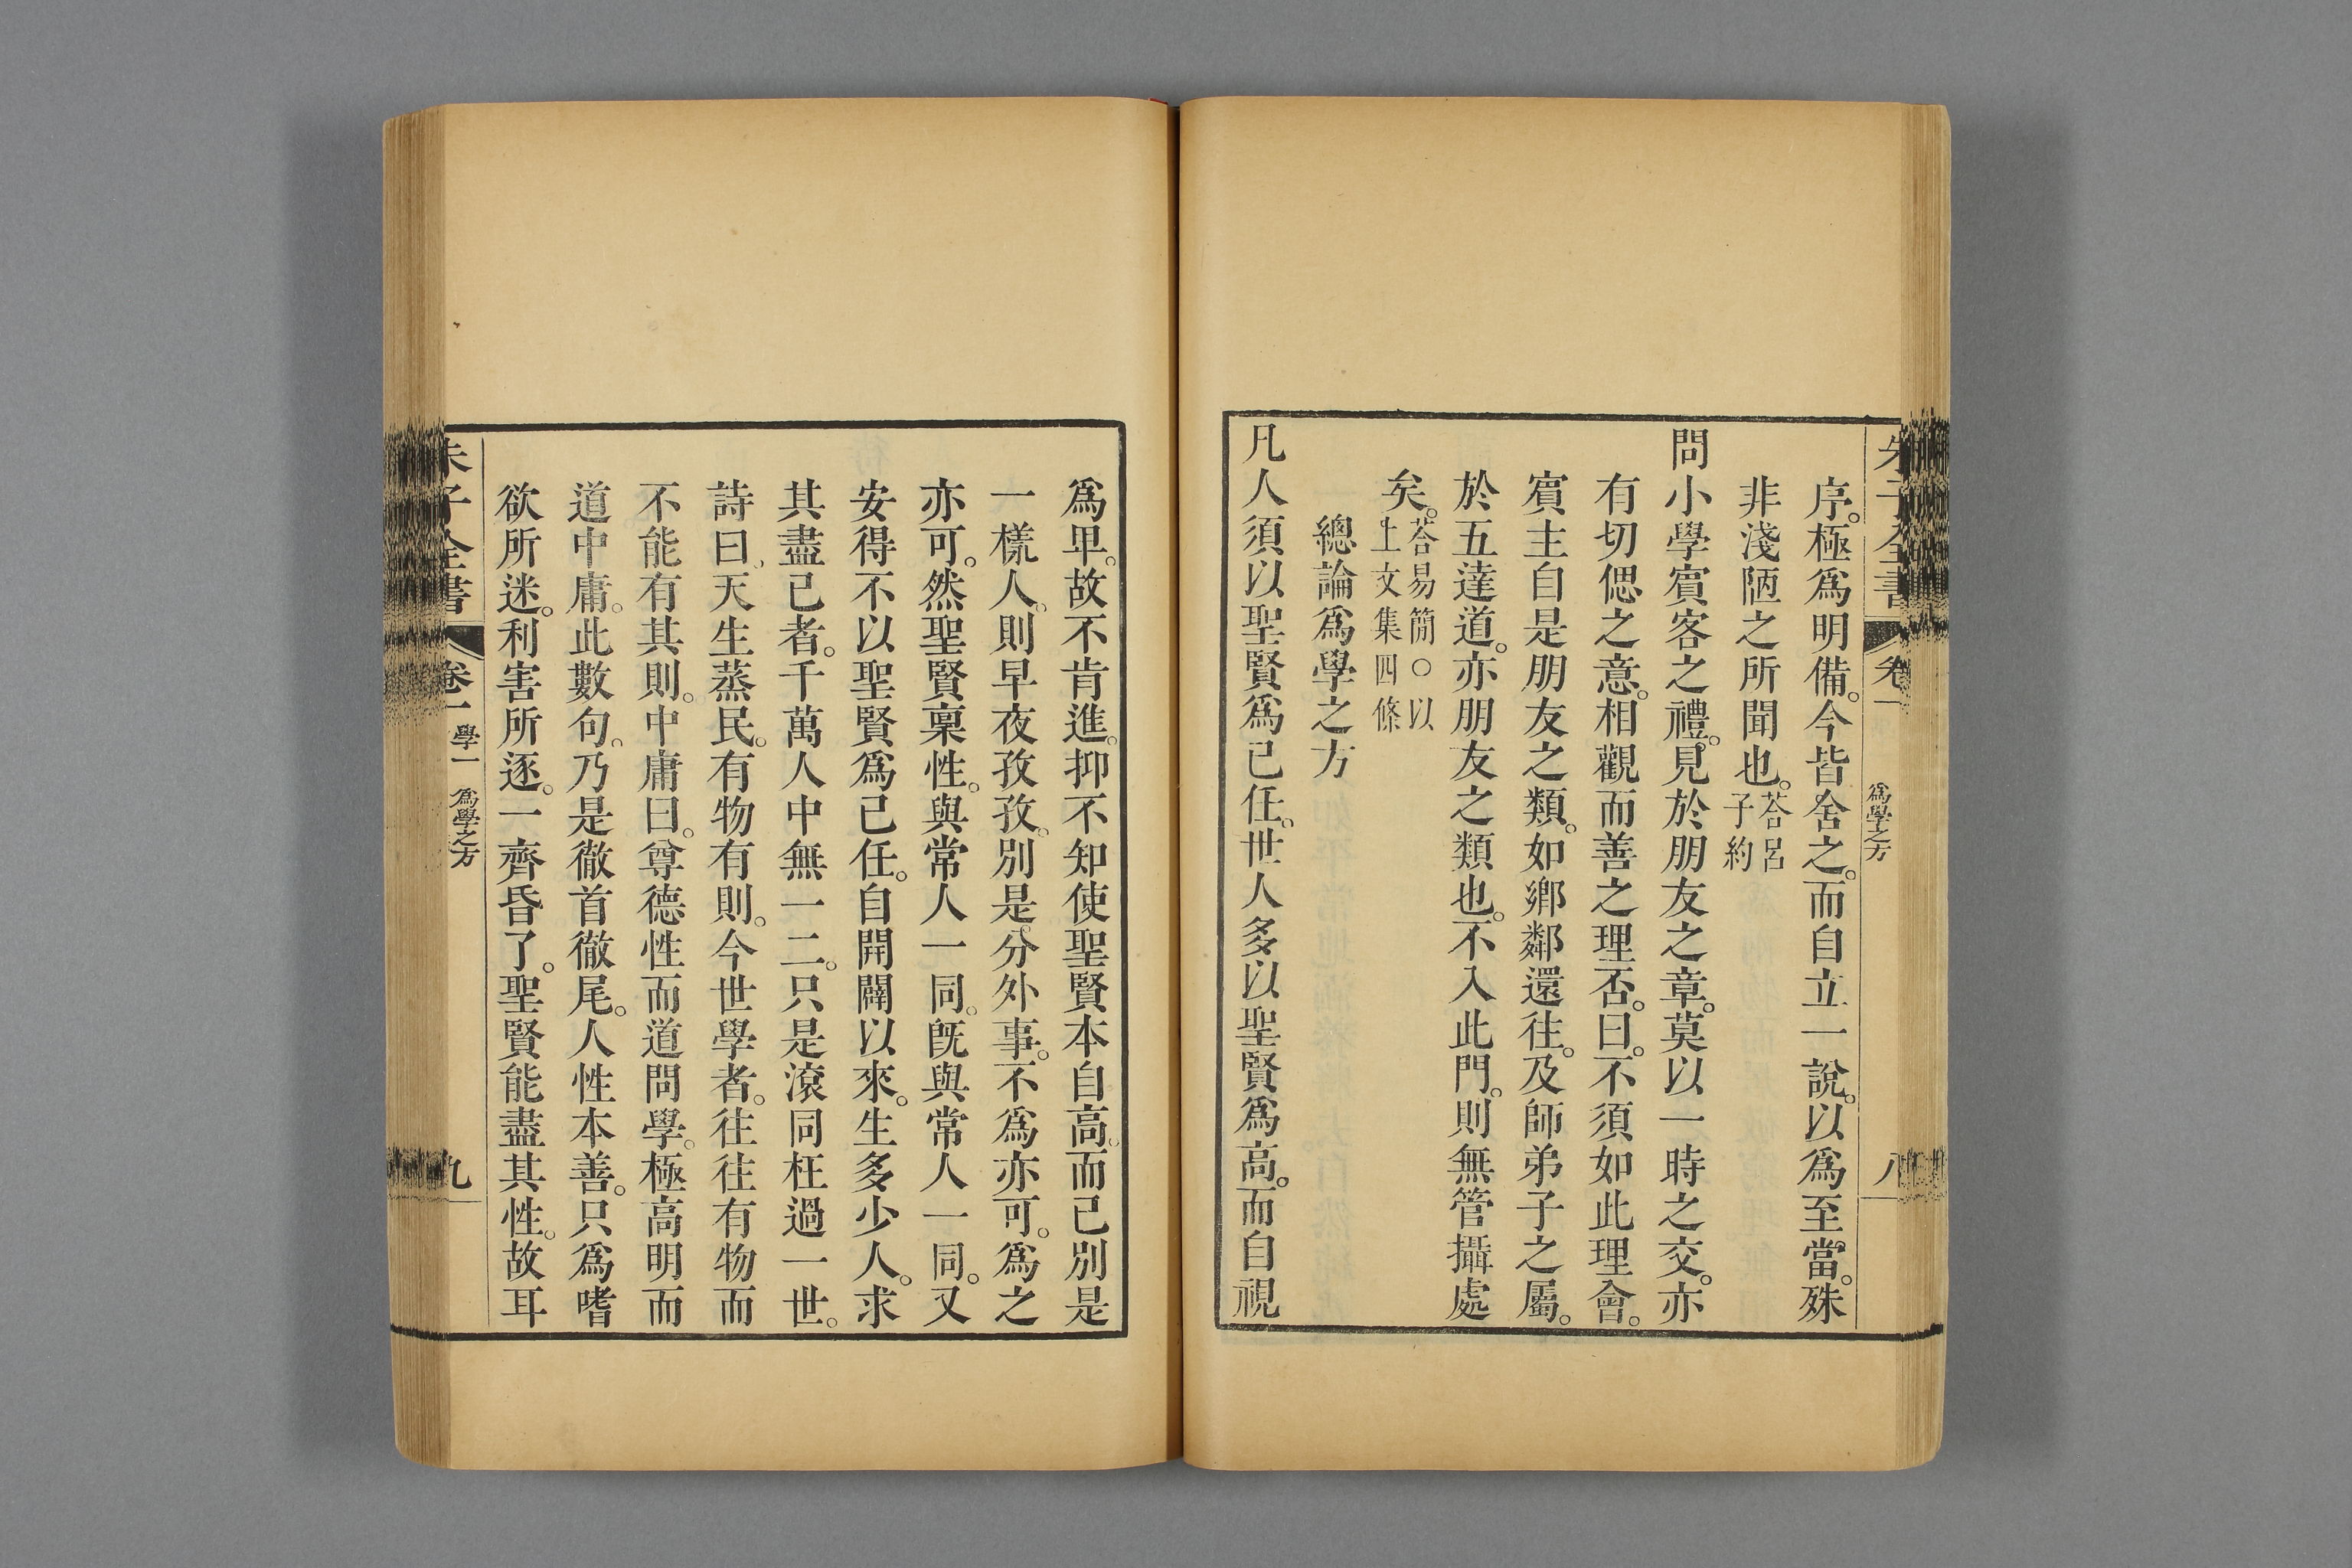 朱子全書 卷一 爲學之方 八
序。極爲明備。今皆舍之。而自立一說。以爲至當。殊
非淺陋之所聞也。荅呂子約
問小學賓客之禮。見於朋友之章。莫以一時之交。亦
有切偲之意。相觀而善之理否。曰。不須如此理會。
賓主自是朋友之類。如鄕鄰還往。及師弟子之屬。
於五達道。亦朋友之類也。不入此門。則無管攝處
矣。荅易簡○以上文集四條
總論爲學之方
凡人須以聖賢爲己任。世人多以聖賢爲高。而自視
爲卑。故不肯進。抑不知使聖賢本自高。而己別是
一樣人。則早夜孜孜。別是分外事。不爲亦可。爲之
亦可。然聖賢稟性。與常人一同。旣與常人一同。又
安得不以聖賢爲己任。自開闢以來。生多少人。求
其盡己者。千萬人中無一二。只是滾同枉過一世。
詩曰、天生蒸民。有物有則。今世學者。往往有物而
不能有其則。中庸曰。尊德性而道問學。極高明而
道中庸。此數句。乃是徹首徹尾。人性本善。只爲嗜
欲所迷。利害所逐。一齊昏了。聖賢能盡其性。故耳
朱子全書 卷一 學一 爲學之方 九